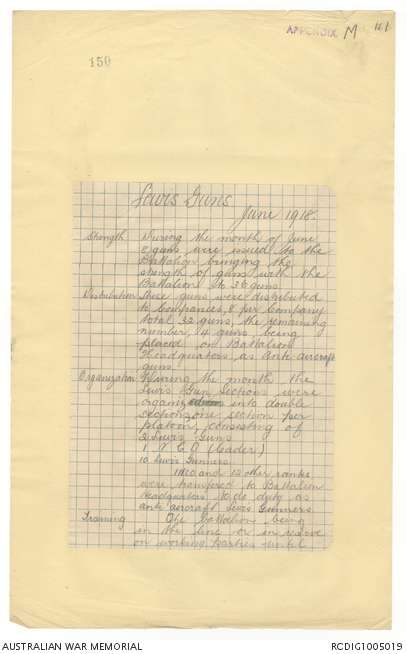 APPENDIX M
150
Lewis Guns
June 1918
Strength During the month of June
8 guns were issued to the
Battalion bringing the
strength of guns with the
Battalion to 36 guns
Distribution These guns were distributed
to Companies, 8 per Company
total 32 guns, the remaining
number, 4 guns being
placed on Battalion
Headquarters as anti aircraft
guns.
Organization During the month the
Lewis Gun Sections were
organized into double
sections, one section per
platoon, consisting of
2 Lewis Guns
1 N.C.O (leader)
10 Lewis Gunners.
1 NCO and 12 other ranks
were transfered to Battalion
headquarters to do duty as
anti aircraft Lewis Gunners.
Training The Battalion being
in the line or in reserve
on working parties until
AUSTRALIAN WAR MEMORIAL
RCDIG1005019